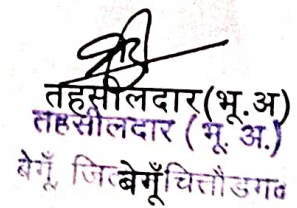 तहसीलदार(भू.अ)
तहसीलदार (भू. अ.)
बेगूँ, जि. बेगूँ चित्तौडगढ